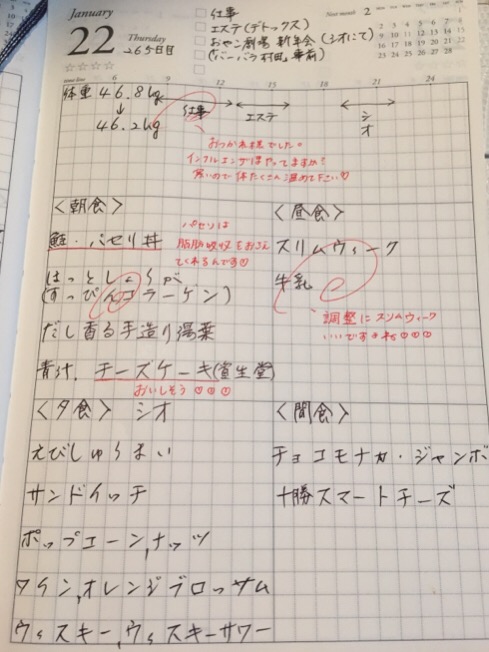 January
22
Thursday
265日目
☆☆☆☆
□ 仕事
□ エステ(デトックス)
□ おやこ劇場 新年会(シオにて)
Next month 2
6 9 12 15 18 21 24
体重 46.8kg
↓
46.2kg
仕事
エステ
シオ
おつかれ様でした。
インフルエンザはやってますか?
寒いので体たくさん温めて下さい♡
<朝食>
鮭・パセリ丼
パセリは
脂肪吸収をおさえ
てくれるんです
はっとしょうが
(すっぴんコラーゲン)
だし香る手造り湯葉
青汁、チーズケーキ(資生堂)
おいしそう
<昼食>
スリムウィーク
牛乳
調整にスリムウィーク
いいですネ
<夕食> シオ
えびしゅうまい
サンドイッチ
ポップコーン,ナッツ
ワイン,オレンジブロッサム
ウィスキー,ウィスキーサワー
<間食>
チョコモナカ・ジャンボ
十勝スマートチーズ